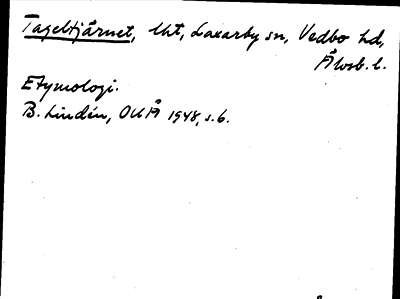 Tageltjärnet, Ukt, Laxarby sn, Vedbo hd,
Älvsb. l.
Etymologi.
B. Lindén, OUÅ 1948, s. 6.